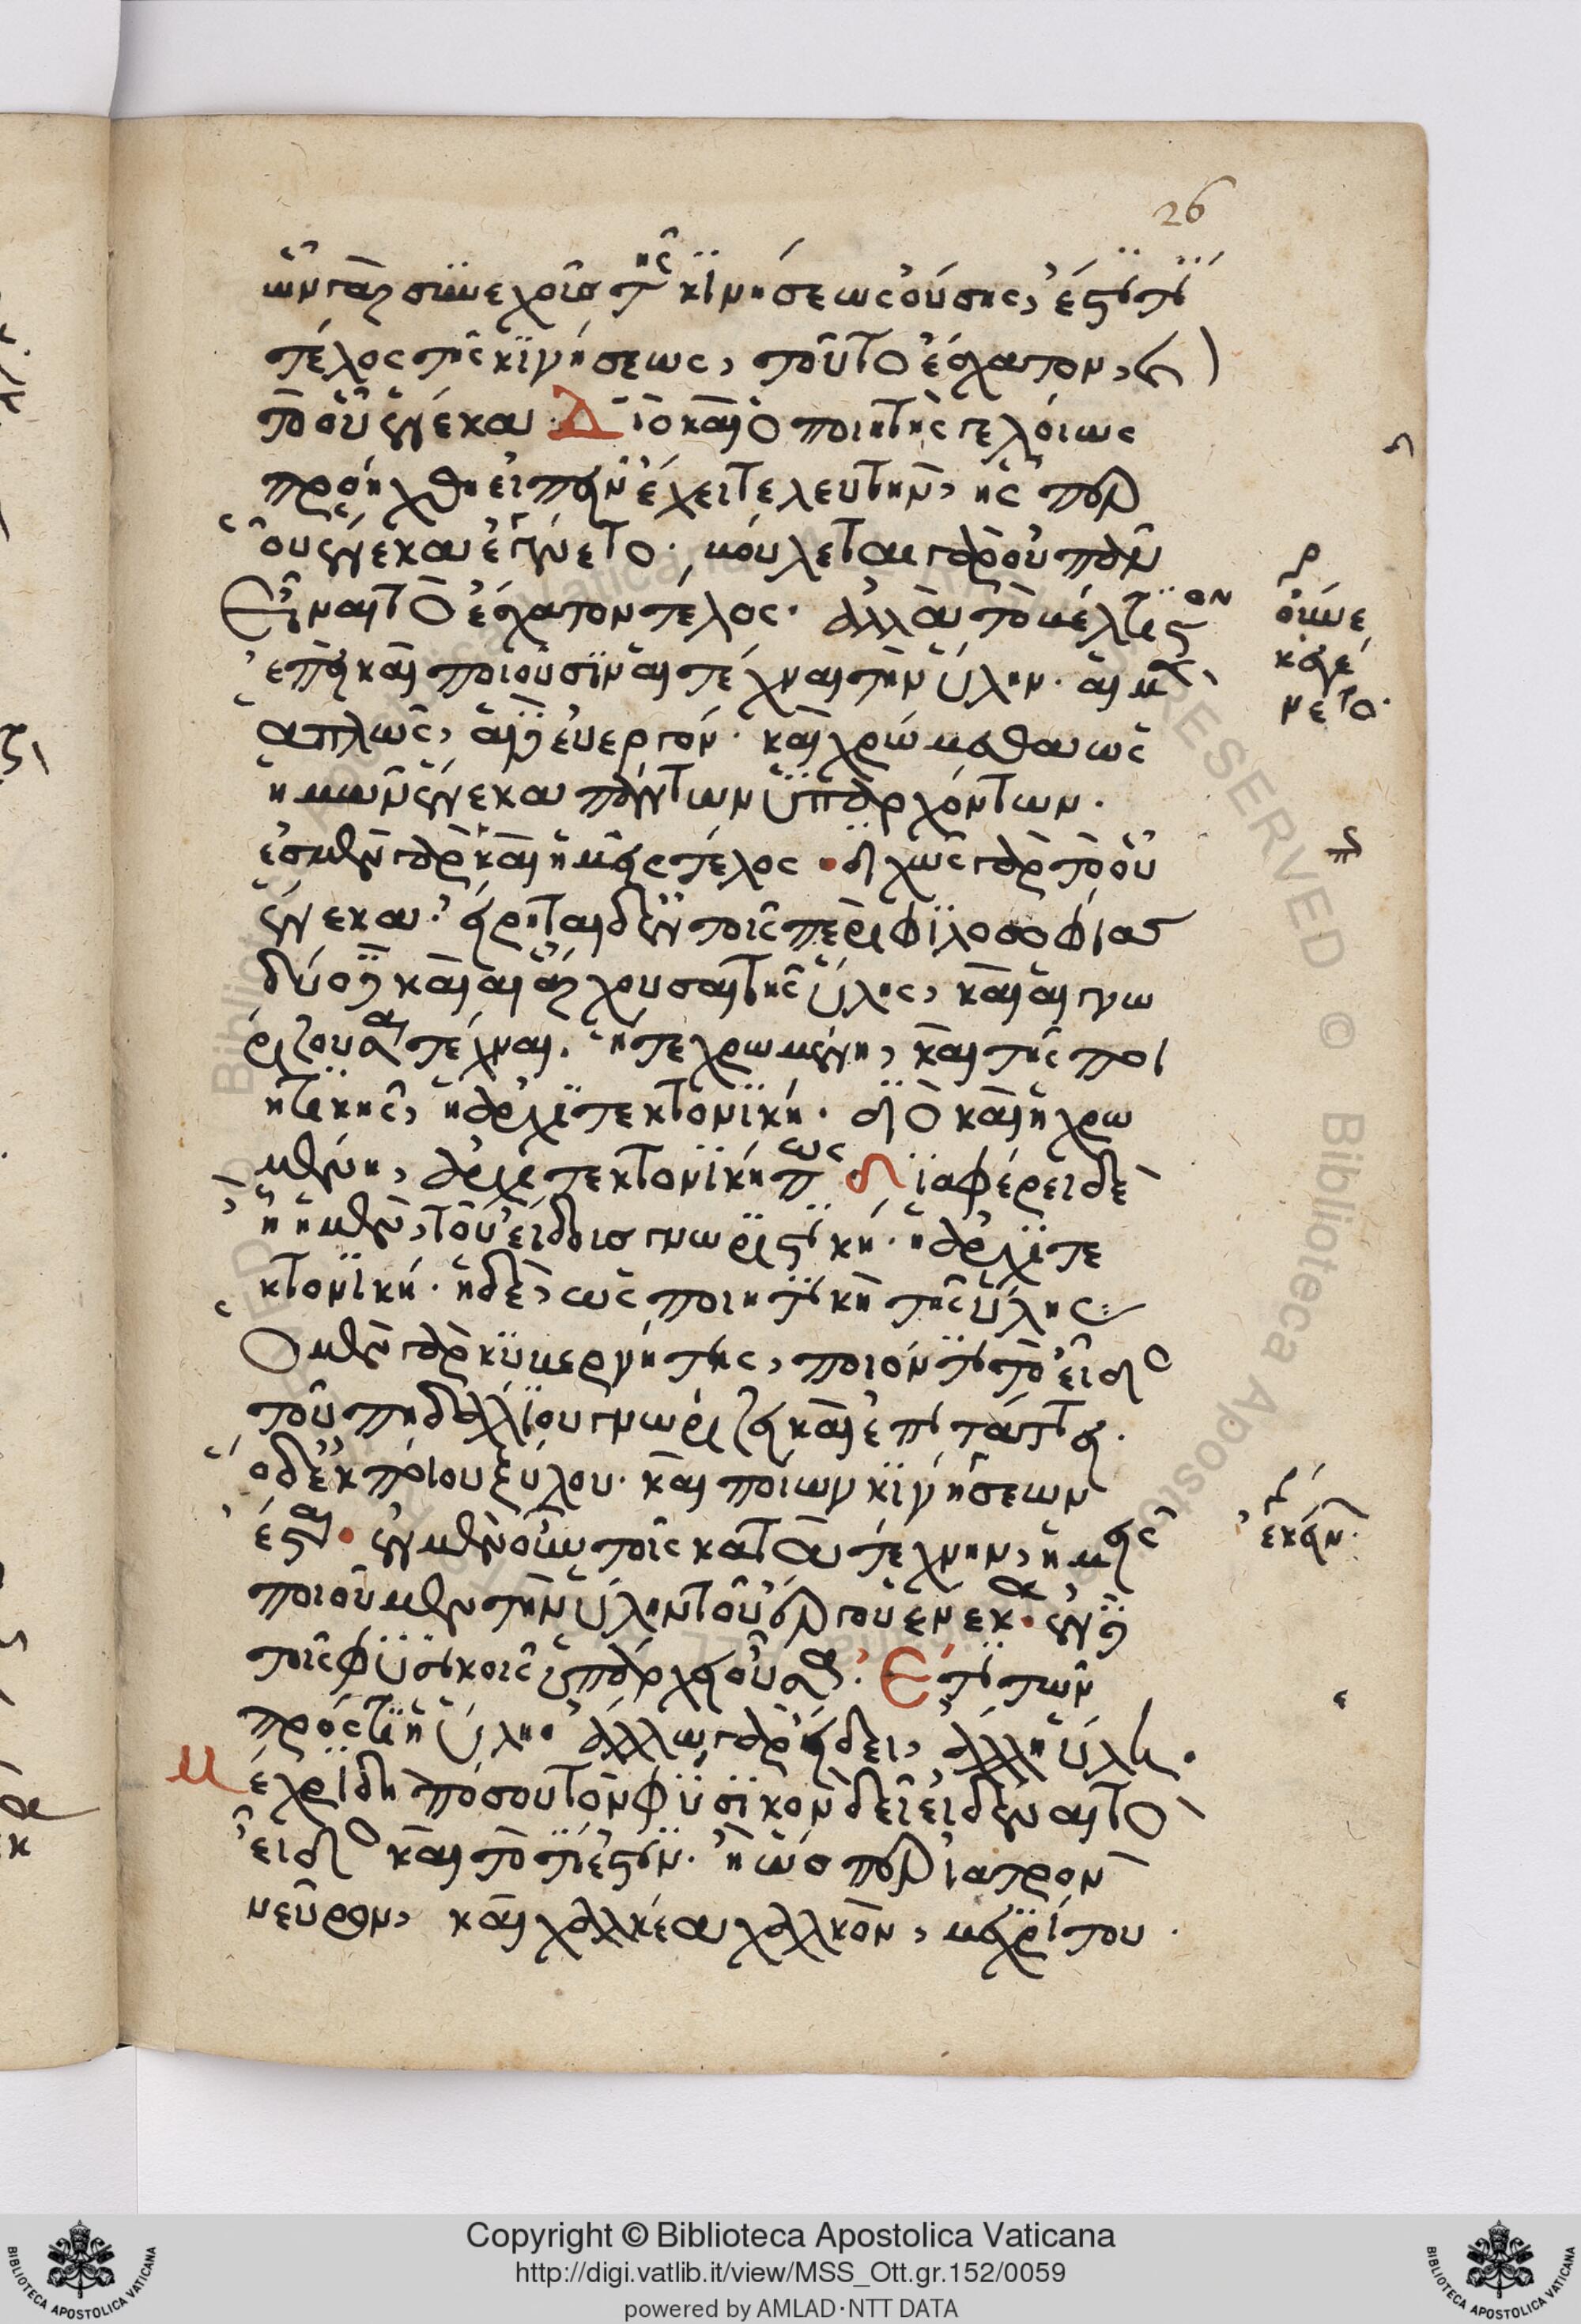 26
ὧν γὰρ συνεχοῦς τῆς κινήσεως οὔσης, ἔστι τι
τέλος τῆς κινήσεως, τοῦτο ἔσχατον, καὶ
τὸ οὗ ἕνεκα. Διὸ καὶ ὁ ποιητὴς γελοίως
προήχθη εἰπεῖν ἔχει τελευτὴν, ἧς περ
οὕνεκα ἐγένετο. βούλεται γὰρ οὐ πᾶν
εἶναι τὸ ἔσχατον τέλος. ἀλλὰ τὸ βέλτιστον
ἐπεὶ καὶ ποιοῦσιν αἱ τέχναι τὴν ὕλην. αἱ μὲν
ἁπλῶς, αἱ δὲ εὐεργόν. καὶ χρώμεθα ὡς
ἡμῶν ἕνεκα πάντων ὑπαρχόντων.
ἐσμὲν γάρ καὶ ἡμεῖς τέλος. διχῶς γὰρ τὸ οὗ
ἕνεκα. εἴρηται δ' ἐν τοῖς περὶ φιλοσοφίας
δύο δὲ καὶ αἱ ἄρχουσαι τῆς ὕλης, καὶ αἱ γνω
ρίζουσαι τέχναι. ἥ τε χρωμένη, καὶ τῆς ποι
ητικῆς, ἡ ἀρχιτεκτονική. διὸ καὶ ἡ χρω
μένη, ἀρχιτεκτονική πως διαφέρει δὲ
ἡ ἡ μὲν, τοῦ εἴδους γνωριστική. ἡ ἀρχιτε
κτονική. ἡ δὲ, ὡς ποιητικὴ τῆς ὕλης
Ὁ μὲν γὰρ κυβερνήτης, ποῖόν τι τὸ εἶδος
τοῦ πηδαλίου γνωρίζει καὶ ἐπιτάττει.
ὁ δ' ἐκ ποίου ξύλου. καὶ ποίων κινήσεων
ἔσται. ἐν μὲν οὖν τοῖς κατὰ τέχνην, ἡμεῖς
ποιοῦμεν τὴν ὕλην τοῦ ἔργου ἕνεκα. ἐν δὲ
τοῖς φυσικοῖς ὑπάρχει οὖσα. Ἔτι τῶν
πρός τι ἡ ὕλη. ἄλλῳ γὰρ εἴδει, ἄλλη ὕλη.
Μέχρι δὴ πόσου τὸν φυσικὸν δεῖ εἰδέναι τὸ
εἶδος καὶ τὸ τί ἐστιν. ἢ ὥσπερ ἰατρὸν
νεῦρον, καὶ χαλκέα χαλκόν, μέχρι του.
οὕνε
κα ἐγέ
νετο.
ἐκεῖν.
Copyright © Biblioteca Apostolica Vaticana
http://digi.vatlib.it/view/MSS_Ott.gr.152/0059
powered by AMLAD·NTT DATA